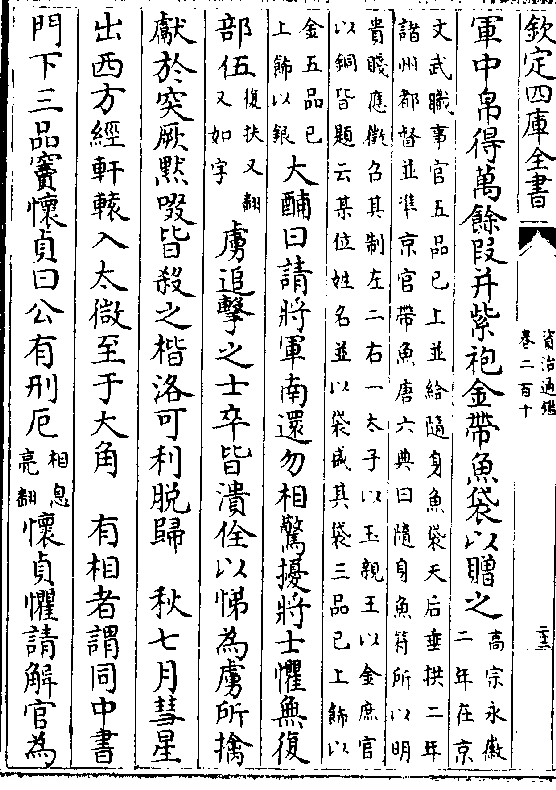 欽定四庫全書
資治通鑑
卷二百十
軍中帛得萬餘段并紫袍金帶魚袋以贈之高宗永徽
二年在京
文武職事官五品已上並給隨身魚袋天后垂拱二年
諸州都督並準京官帶魚唐六典曰隨身魚符所以明
貴賤應徵召其制左二右一太子以玉親王以金庶官
以銅皆題云某位姓名並以袋盛其袋三品已上飾以
金五品已
上飾以銀
大酺曰請將軍南還勿相驚擾將士懼無復
部伍復扶又翻
又如字
虜追擊之士卒皆潰佺以悌為虜所擒
獻於突厥黙啜皆殺之楷洛可利脫歸　秋七月彗星
出西方經軒轅入太微至于大角　有相者謂同中書
門下三品竇懷貞曰公有刑厄相息
亮翻
懷貞懼請解官為